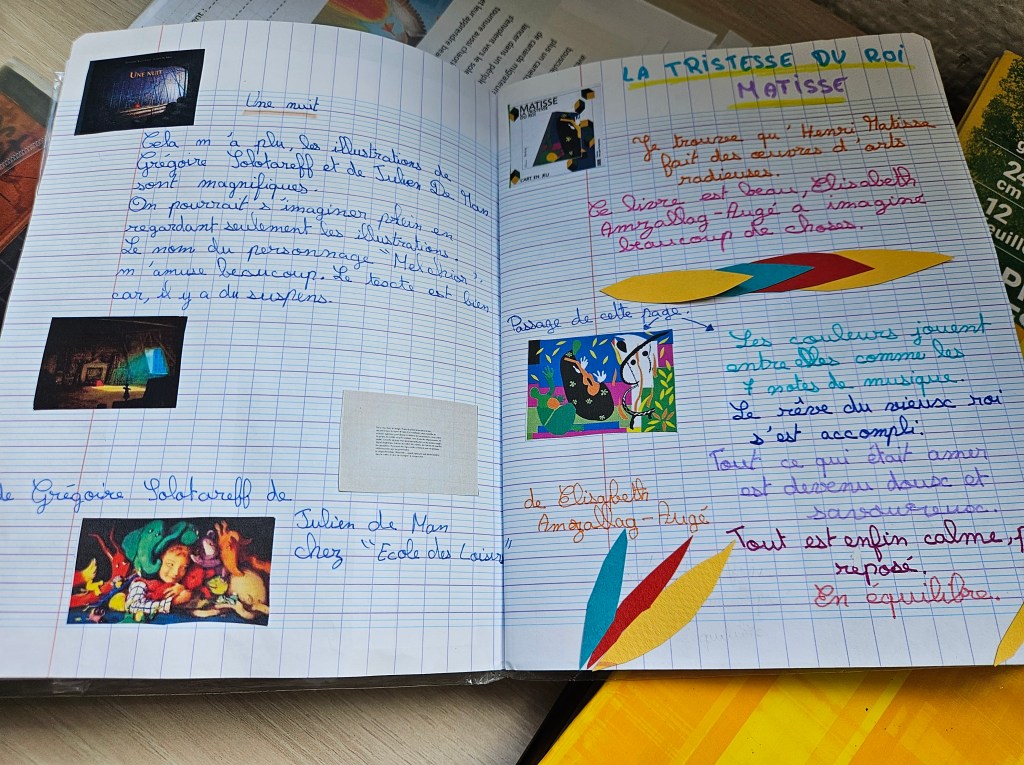 UNE NUIT
Une nuit
Cela m'a plu, les illustrations de
Grégoire Solotareff et de Julien De Man
sont magnifiques.
On pourrait s'imaginer plein en
regardant seulement les illustrations.
Le nom du personnage "Melchior",
m'amuse beaucoup. Le texte est bien
car, il y a du suspens.
de Grégoire Solotareff de
Julien de Man
chez "Ecole des Loisirs"
LA TRISTESSE DU ROI
MATISSE
MATISSE
L'ART EN JEU
Je trouve qu'Henri Matisse
fait des œuvres d'arts
radieuses.
Ce livre est beau, Elisabeth
Amzallag-Augé a imaginé
beaucoup de choses.
Passage de cette page.
Les couleurs jouent
entre elles comme les
7 notes de musique.
Le rêve du vieux roi
s'est accompli.
Tout ce qui était amer
est devenu doux et
savoureux.
de Elisabeth
Amzallag-Augé
Tout est enfin calme,
reposé.
En équilibre.
24
cm
12